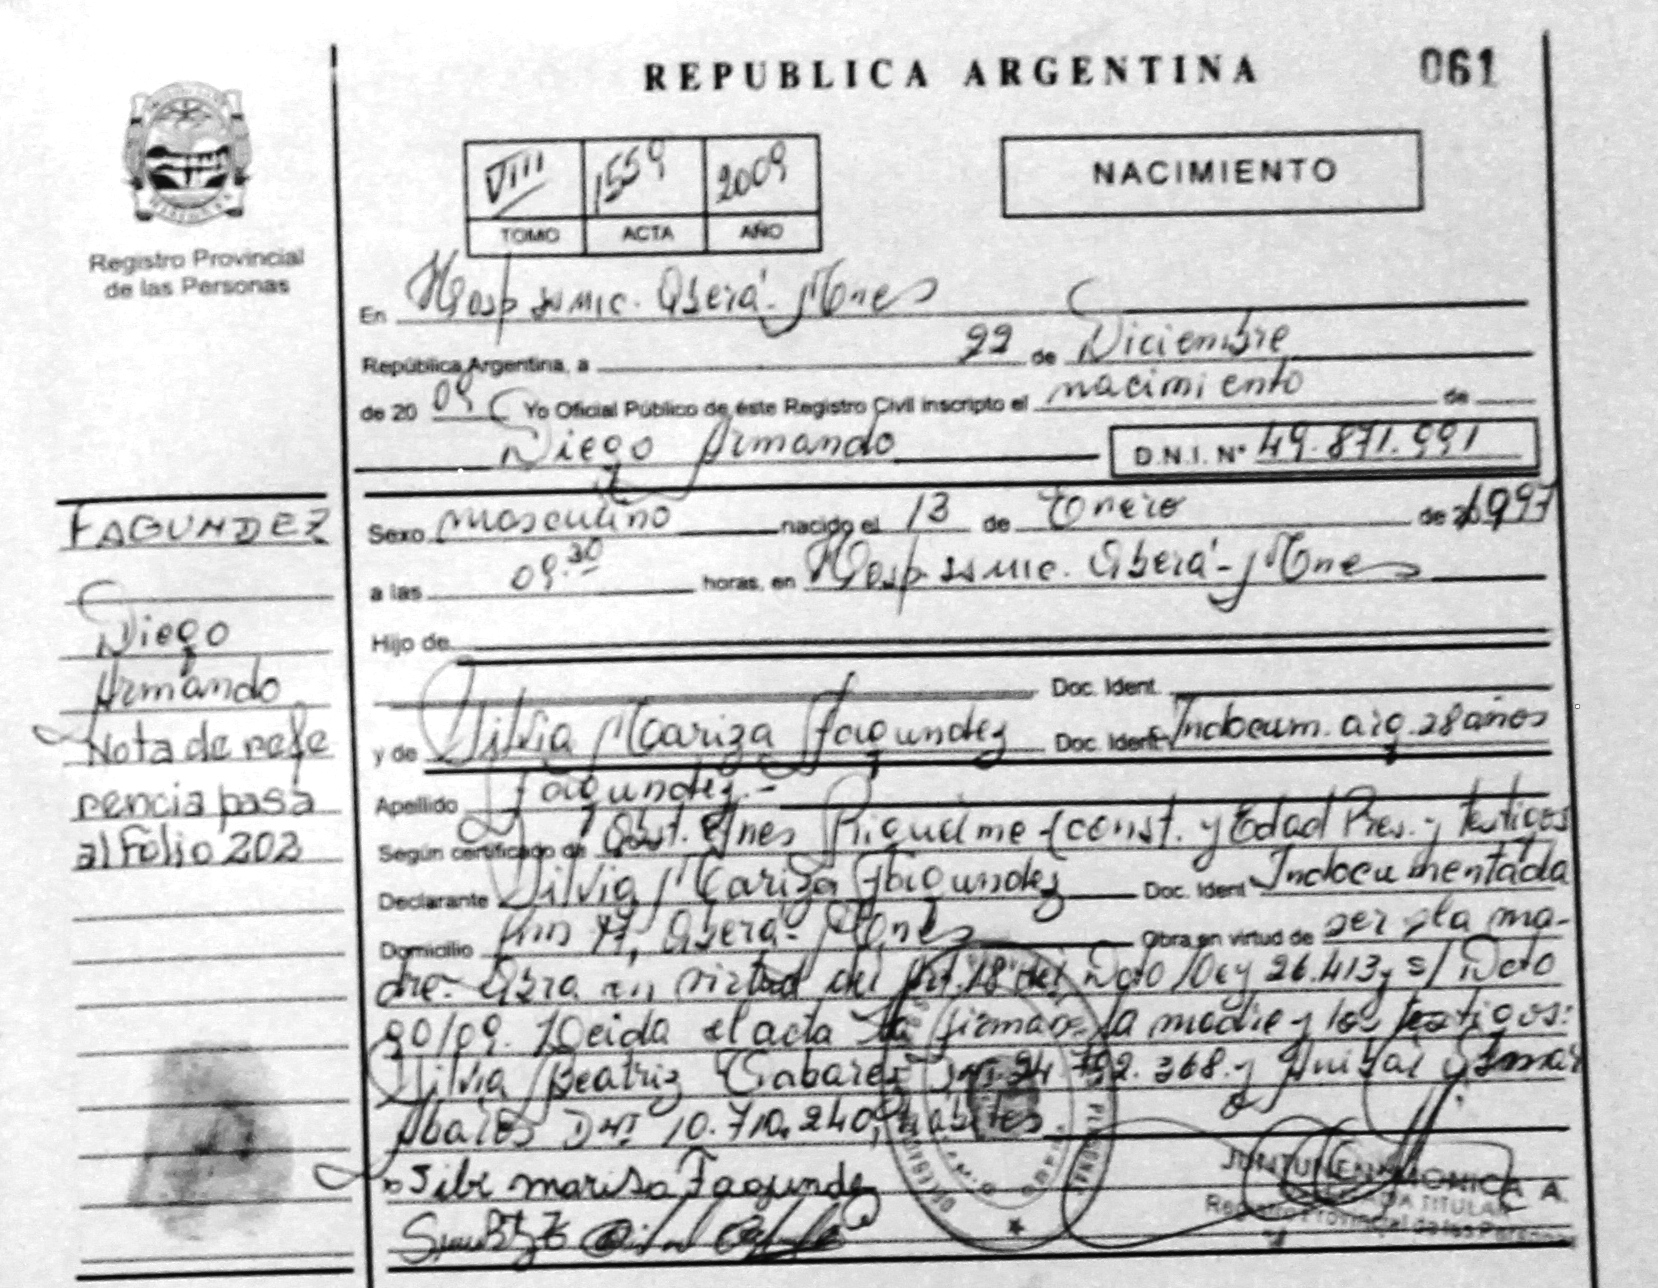 REPUBLICA ARGENTINA 061
VIII 1559 2009
TOMO ACTA AÑO
NACIMIENTO
Registro Provincial
de las Personas
En Hosp ssmic. Oberá - Mnes
República Argentina, a 22 de Diciembre
de 20 09 Yo Oficial Público de éste Registro Civil inscripto el nacimiento de
Diego Armando D.N.I. Nº 49.871.991
FAGUNDEZ
Diego
Armando
Nota de refe
rencia pasa
al Folio 202
Sexo masculino nacido el 13 de Enero de 1997
a las 09.30 horas, en Hosp ssmic. Oberá - Mnes
Hijo de
Doc. Ident.
y de Silvia Mariza Fagundez Doc. Ident. Indocum. arg. 28 años
Apellido Fagundez.-
Según certificado de Obst. Ines Riquelme - (const. y Edad Pres. y testigos
Declarante Silvia Mariza Fagundez Doc. Ident Indocumentada
Domicilio Oberá - Mnes Obra en virtud de ser la ma-
dre. Obra en virtud del Art. 18 del Dcto/Ley 26.413 y s/ Dcto
90/09. Leida el acta la firman la madre y los testigos:
Silvia Beatriz Tabarez 24.792.368 y Anibal Omar
Dni 10.710.240, habiles
Silvi marisa Fagundez
JUNTUNEN MONICA A.
TITULAR
Registro Provincial de las Personas